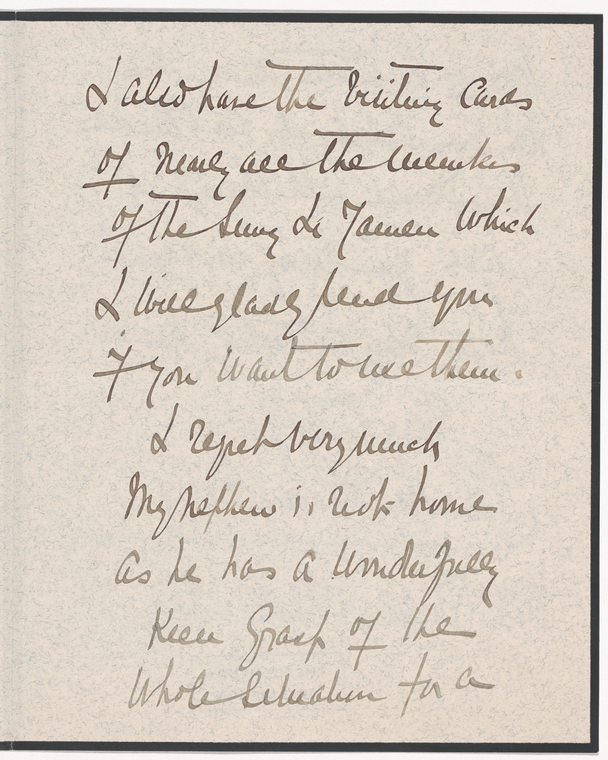 I also have the Visiting Cards
of nearly all the members
of the Tsung Li Yamen Which
I Will gladly send you
if you Want to use them.
I regret very much
My nephew is not home
as he has a Wonderfully
Keen Grasp of the
Whole Situation for a